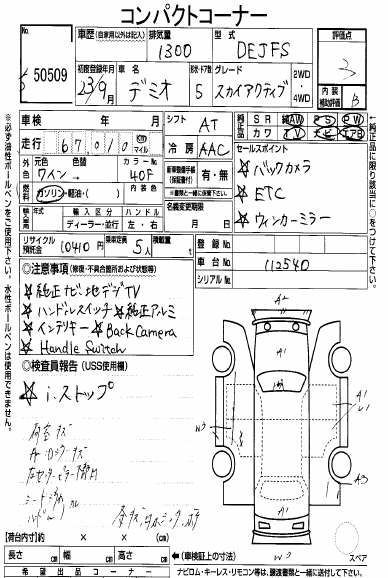 コンパクトコーナー
50509
車歴 (自家用以外は記入) 排気量 1300 型式 DEJFS 評価点 3
初度登録年月 23/9月 車名 デミオ ドア 5 グレード スカイアクティブ 2WD 4WD 内装補助評価 B
車検 年 月 シフト AT 純正品 SR AW PS PW
走行 67010 km マイル 冷房 AAC カワ TV ナビ エアB
色 元色 ワイン 色替 カラーNo 40F 有・無 セールスポイント
☆バックカメラ
☆ETC
☆ウィンカーミラー
燃料 ガソリン・軽油・( ) 内装色
年式 輸入区分 ハンドル 名義変更期限
ディーラー・並行 左・右 月 日
リサイクル預託金 10410円 乗車定員 5人 積載量 t 登録No
車台No 112540
シリアルNo
◎注意事項 (修復・不具合箇所および状態等)
☆純正ナビ・地デジTV
☆ハンドルスイッチ ☆純正アルミ
☆インテリキー ☆Back Camera
☆Handle Switch
◎検査員報告 (USS使用欄)
☆i.ストップ
A2
A1
A1
A1
W3
A3
W3
スペア
【荷台内寸】 × × (cm)
長さ cm 幅 cm 高さ cm ←(車検証上の寸法)
希望出品コーナー ナビロム・キーレス・リモコン等は、譲渡書類と一緒に送付して下さい。
※必ず油性ボールペンをご使用下さい。水性ボールペンは使用できません。